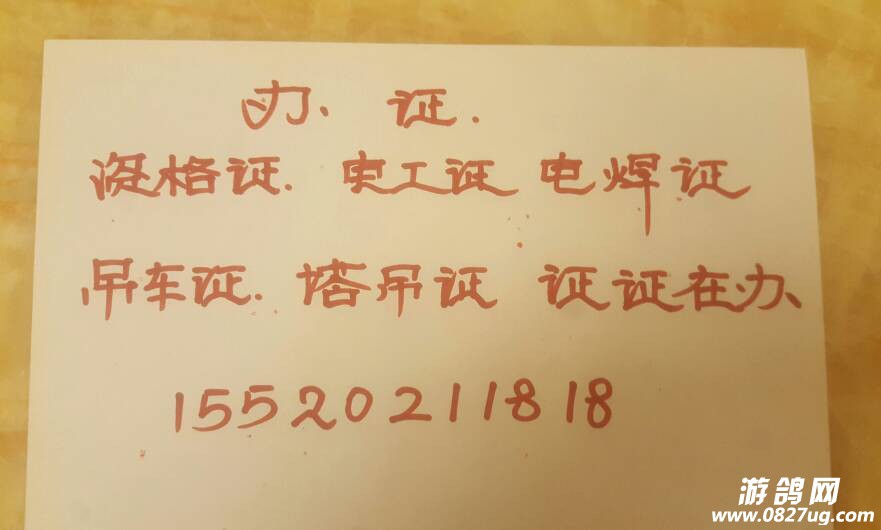 办、证.
资格证. 电工证 电焊证
吊车证. 塔吊证 证证在办、
15520211818
游鸽网
www.0827ug.com